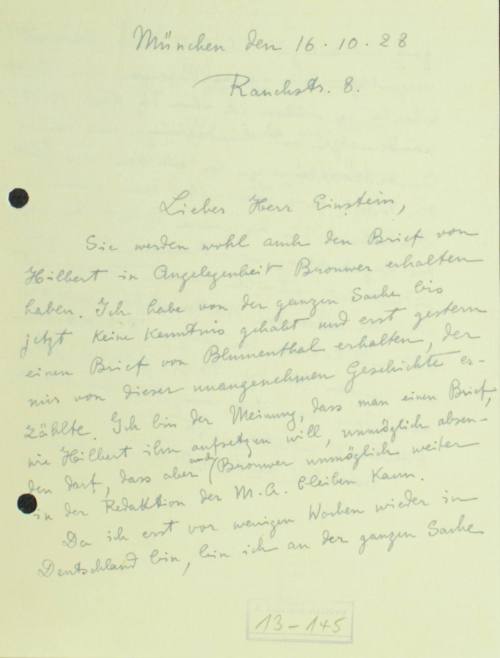 München den 16.10.28
Rauchstr. 8.
Lieber Herr Einstein,
Sie werden wohl auch den Brief von
Hilbert in Angelegenheit Brouwer erhalten
haben. Ich habe von der ganzen Sache bis
jetzt keine Kenntnis gehabt und erst gestern
einen Brief von Blumenthal erhalten, der
mir von dieser unangenehmen Geschichte er-
zählte. Ich bin der Meinung, dass man einen Brief,
wie Hilbert ihn aufsetzen will, unmöglich absen-
den darf, dass aber auch Brouwer unmöglich weiter
in der Redaktion der M.A. bleiben kann.
Da ich erst vor wenigen Wochen wieder in
Deutschland bin, bin ich an der ganzen Sache
13-145